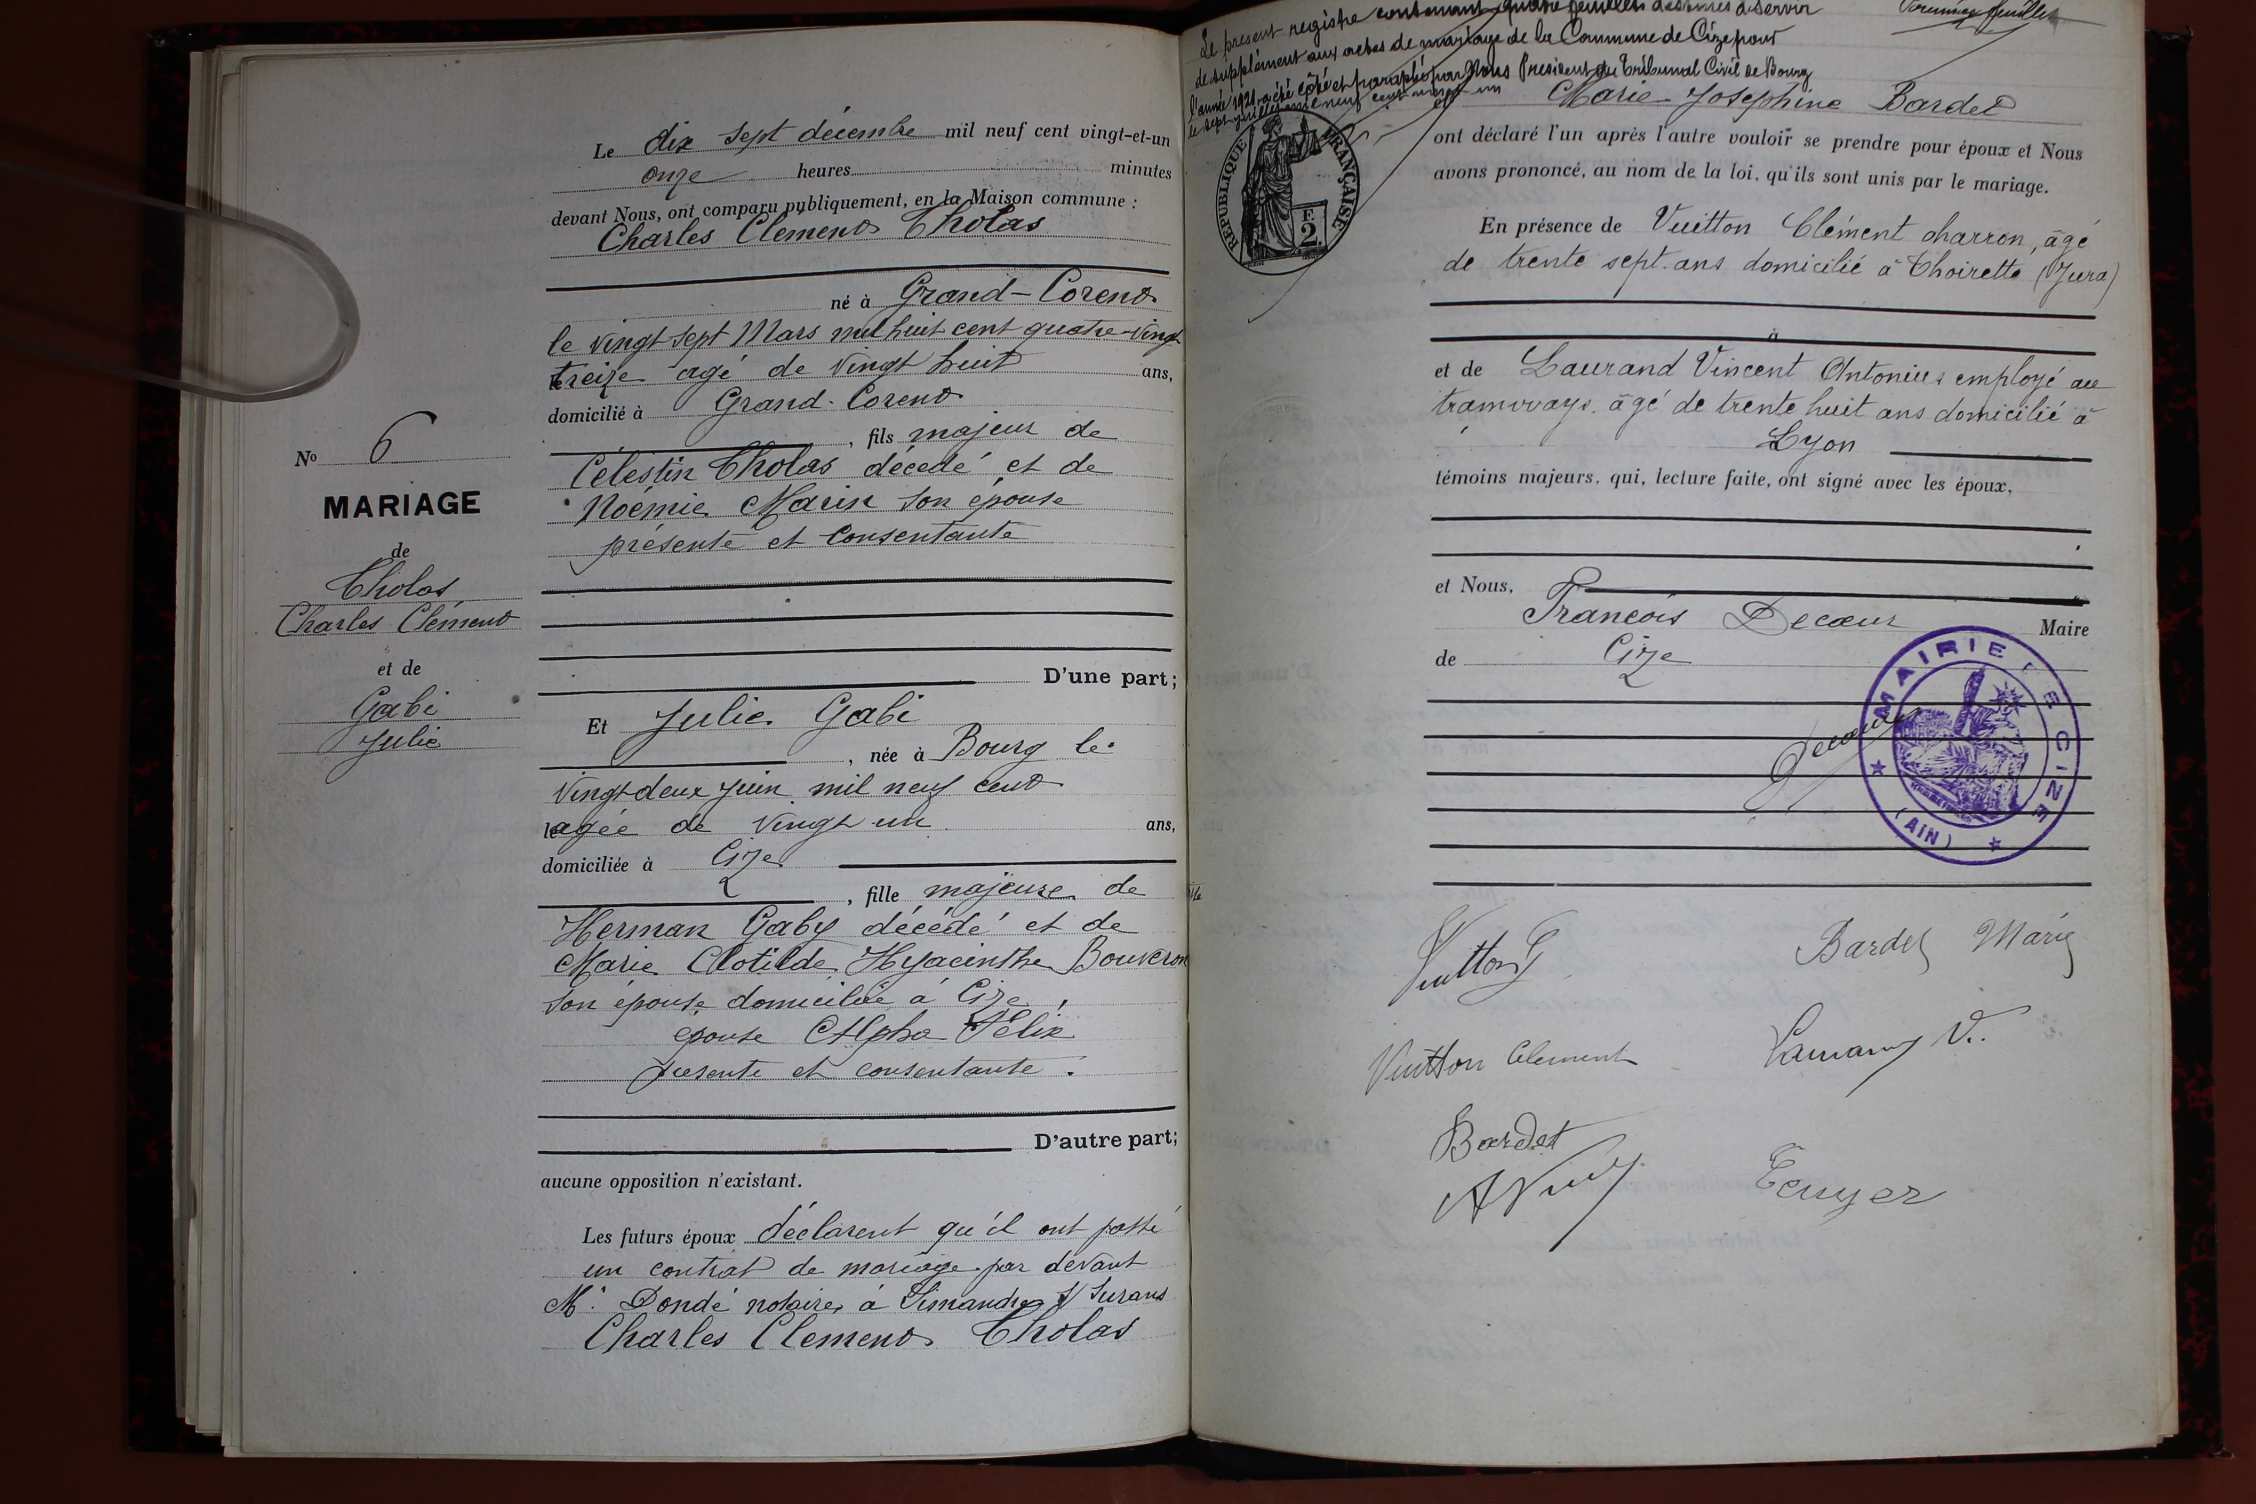 Le dix sept décembre mil neuf cent vingt-et-un
onze heures minutes
devant Nous, ont comparu publiquement, en la Maison commune :
Charles Clément Tholas
né à Grand-Corent
le vingt sept Mars mil huit cent quatre-vingt
treize agé de vingt huit ans,
domicilié à Grand-Corent
, fils majeur de
Célestin Tholas décedé et de
Noémie Marin son épouse
présente et consentante
D'une part;
Et Julie Gabi
, née à Bourg le
vingt deux juin mil neuf cent
agée de vingt un ans,
domiciliée à Cize
, fille majeure de
Herman Gaby décédé et de
Marie Clotilde Hyacinthe Bouveron
son épouse domiciliée à Cize,
épouse Alpha Félix
présente et consentante.
D'autre part;
aucune opposition n'existant.
Les futurs époux déclarent qu'il ont passé
un contrat de mariage par devant
Me Dondé notaire à Simandre s/ Surans
Charles Clement Tholas
No 6
MARIAGE
de
Tholas
Charles Clément
et de
Gabi
Julie
Le présent registre contenant quatre feuillets destinés à servir
de supplément aux actes de mariage de la Commune de Cize pour
l'année 1921 a été côté et paraphé par Nous Président du Tribunal Civil de Bourg
le sept juillet mil neuf cent vingt un
feuillet
RÉPUBLIQUE FRANÇAISE
F.
2.
et Marie-Josephine Bardet
ont déclaré l'un après l'autre vouloir se prendre pour époux et Nous
avons prononcé, au nom de la loi, qu'ils sont unis par le mariage.
En présence de Vuitton Clément charron, âgé
de trente sept ans domicilié à Thoirette (Jura)
à
et de Laurand Vincent Antonius employé au
tramways, âgé de trente huit ans domicilié à
Lyon
témoins majeurs, qui, lecture faite, ont signé avec les époux,
et Nous,
François Decœur Maire
de Cize
MAIRIE DE CIZE
(AIN)
Decœur
Bardet Marie
Vuitton Clement
Bardet